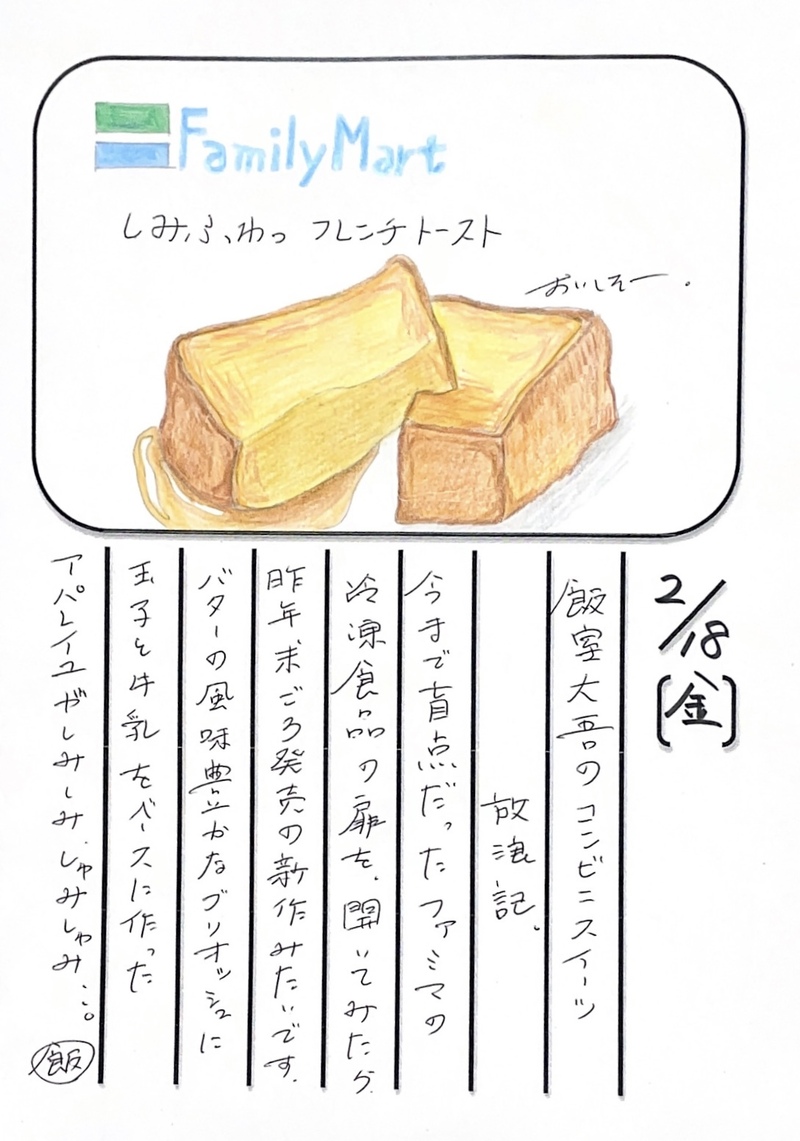 FamilyMart
しみふわっ フレンチトースト
おいしそー.
2/18
[金]
飯室大吾のコンビニスイーツ
放浪記。
今まで盲点だったファミマの
冷凍食品の扉を、開いてみたら
昨年末ごろ発売の新作みたいです。
バターの風味豊かなブリオッシュに
玉子と牛乳をベースに作った
アパレイユがしみしみ、しゅみしゅみ…。
飯